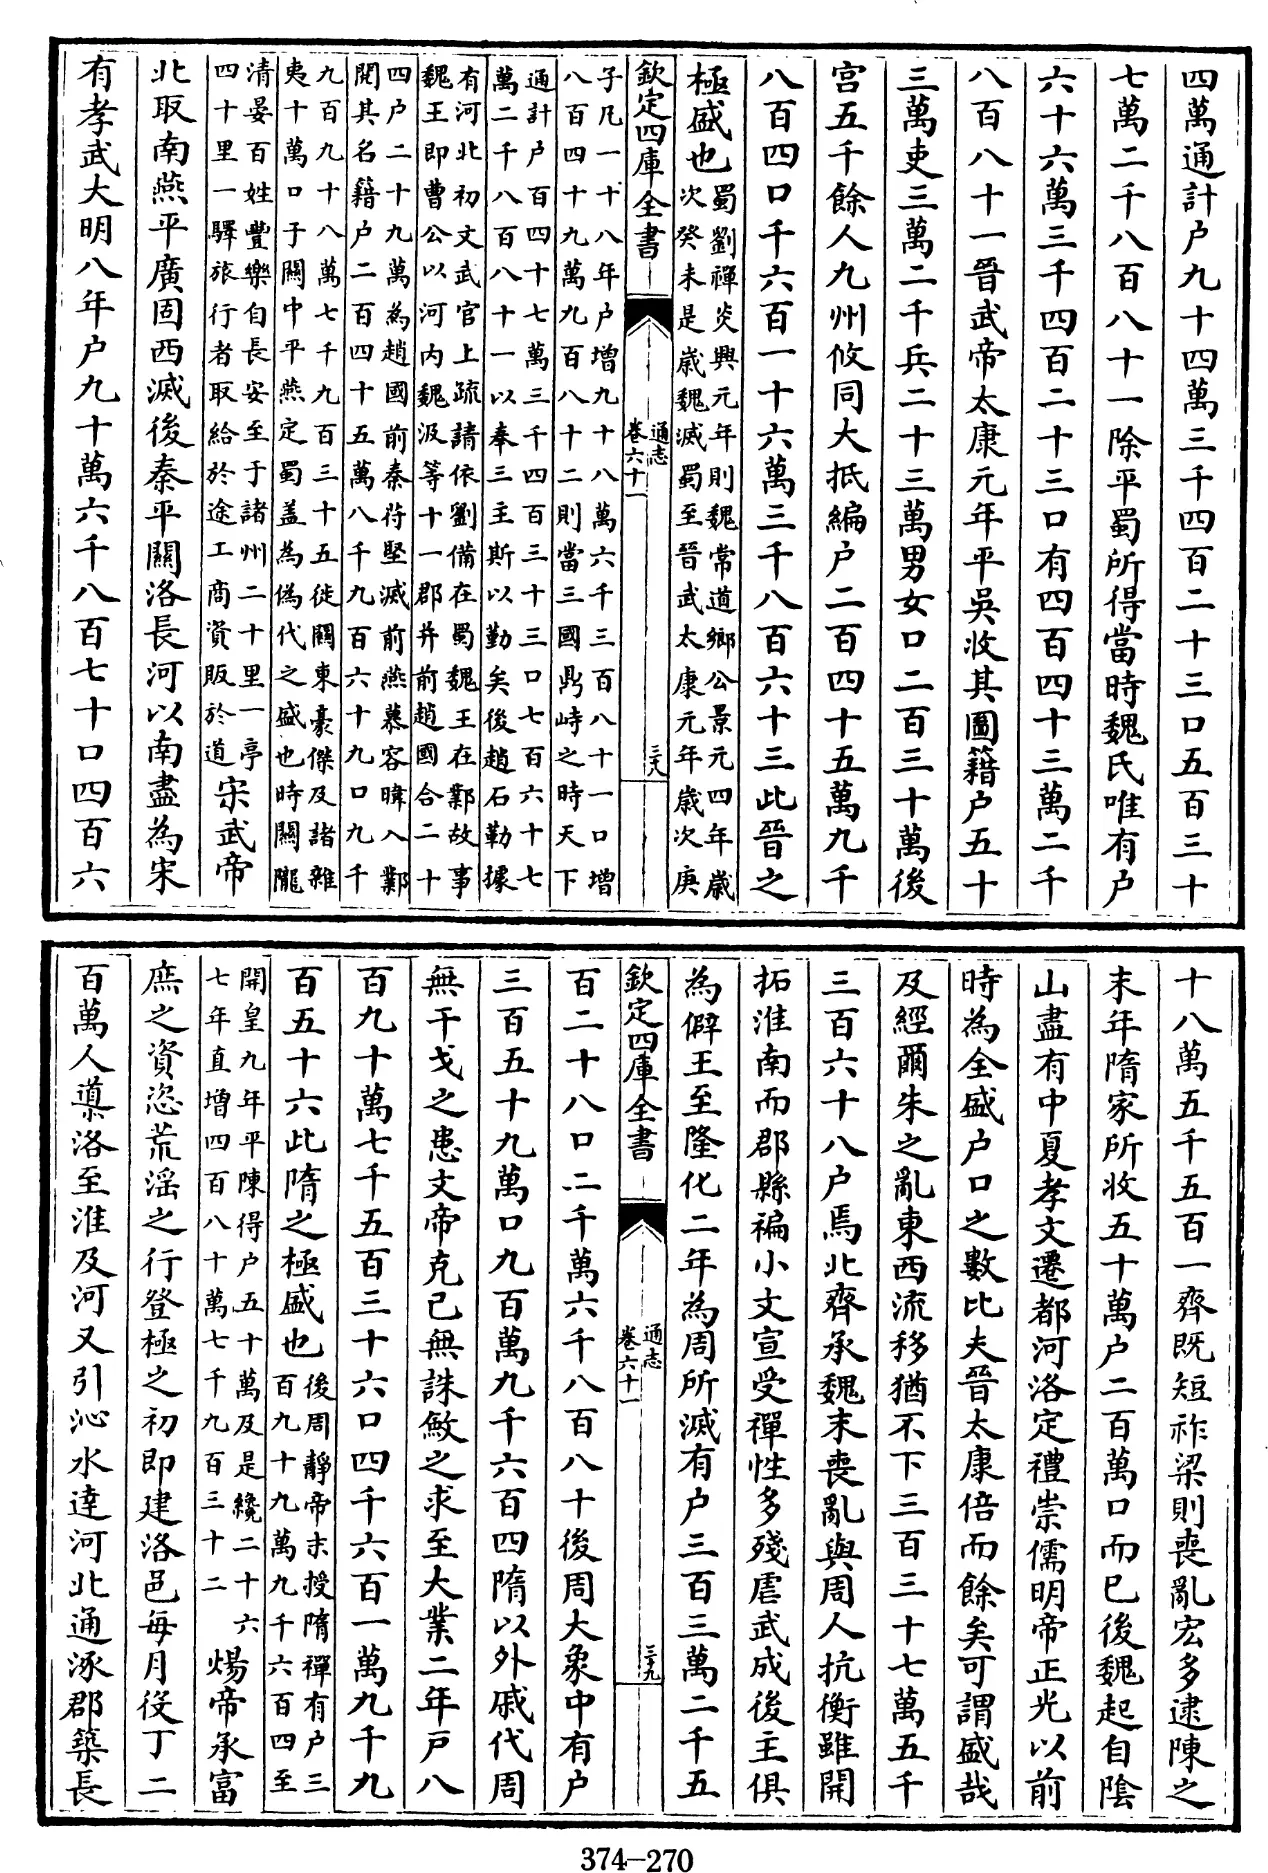 四萬通計户九十四萬三千四百二十三口五百三十
七萬二千八百八十一除平蜀所得當時魏氏唯有户
六十六萬三千四百二十三口有四百四十三萬二千
八百八十一晉武帝太康元年平吳收其圖籍户五十
三萬吏三萬二千兵二十三萬男女口二百三十萬後
宮五千餘人九州攸同大抵編户二百四十五萬九千
八百四口千六百一十六萬三千八百六十三此晉之
極盛也蜀劉禪炎興元年則魏常道鄉公景元四年歲
次癸未是歲魏滅蜀至晉武太康元年歲次庚
欽定四庫全書
通志
卷六十一
三十八
子凡一十八年户增九十八萬六千三百八十一口增
八百四十九萬九百八十二則當三國鼎峙之時天下
通計户百四十七萬三千四百三十三口七百六十七
萬二千八百八十一以奉三主斯以勤矣後趙石勒據
有河北初文武官上疏請依劉備在蜀魏王在鄴故事
魏王即曹公以河内魏汲等十一郡并前趙國合二十
四户二十九萬為趙國前秦苻堅滅前燕慕容暐入鄴
閱其名籍户二百四十五萬八千九百六十九口九千
九百九十八萬七千九百三十五徙關東豪傑及諸雜
夷十萬口于關中平燕定蜀蓋為偽代之盛也時關隴
清晏百姓豐樂自長安至于諸州二十里一亭
四十里一驛旅行者取給於途工商資販於道宋武帝
北取南燕平廣固西滅後秦平關洛長河以南盡為宋
有孝武大明八年户九十萬六千八百七十口四百六
十八萬五千五百一齊既短祚梁則喪亂宏多逮陳之
末年隋家所收五十萬户二百萬口而已後魏起自陰
山盡有中夏孝文遷都河洛定禮崇儒明帝正光以前
時為全盛户口之數比夫晉太康倍而餘矣可謂盛哉
及經爾朱之亂東西流移猶不下三百三十七萬五千
三百六十八户焉北齊承魏末喪亂與周人抗衡雖開
拓淮南而郡縣褊小文宣受禪性多殘虐武成後主俱
為僻王至隆化二年為周所滅有户三百三萬二千五
欽定四庫全書
通志
卷六十一
三十九
百二十八口二千萬六千八百八十後周大象中有户
三百五十九萬口九百萬九千六百四隋以外戚代周
無干戈之患文帝克己無誅斂之求至大業二年户八
百九十萬七千五百三十六口四千六百一萬九千九
百五十六此隋之極盛也後周靜帝末授隋禪有户三
百九十九萬九千六百四至
開皇九年平陳得户五十萬及是纔二十六
七年直增四百八十萬七千九百三十二煬帝承富
庶之資恣荒淫之行登極之初即建洛邑每月役丁二
百萬人導洛至淮及河又引沁水達河北通涿郡築長
374-270